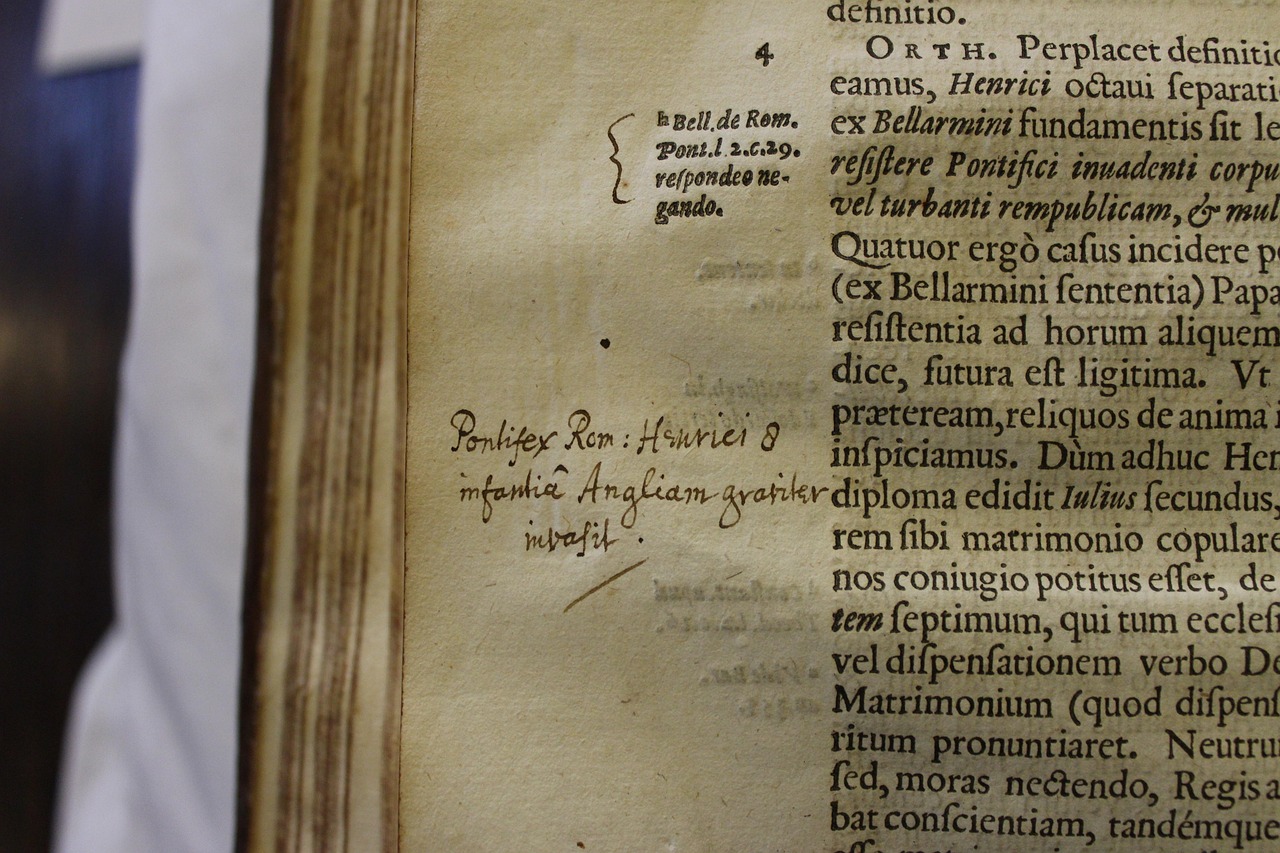 definitio.
4
ORTH. Perplacet definitio
eamus, Henrici octaui ſeparati
h Bell. de Rom.
Pont. l. 2. c. 29.
reſpondeo ne-
gando.
ex Bellarmini fundamentis ſit le
reſiſtere Pontifici inuadenti corpu
vel turbanti rempublicam, & mul
Quatuor ergò caſus incidere p
(ex Bellarmini ſententia) Papa
reſiſtentia ad horum aliquem
dice, futura eſt ligitima. Vt
præteream, reliquos de anima
inſpiciamus. Dùm adhuc Hen
Pontifex Rom: Henrici 8
infantiâ Angliam graviter
invasit.
diploma edidit Iulius ſecundus,
rem ſibi matrimonio copulare
nos coniugio potitus eſſet, de
tem ſeptimum, qui tum eccleſi
vel diſpenſationem verbo De
Matrimonium (quod diſpenſ
ritum pronuntiaret. Neutru
ſed, moras nectendo, Regis a
bat conſcientiam, tandémque